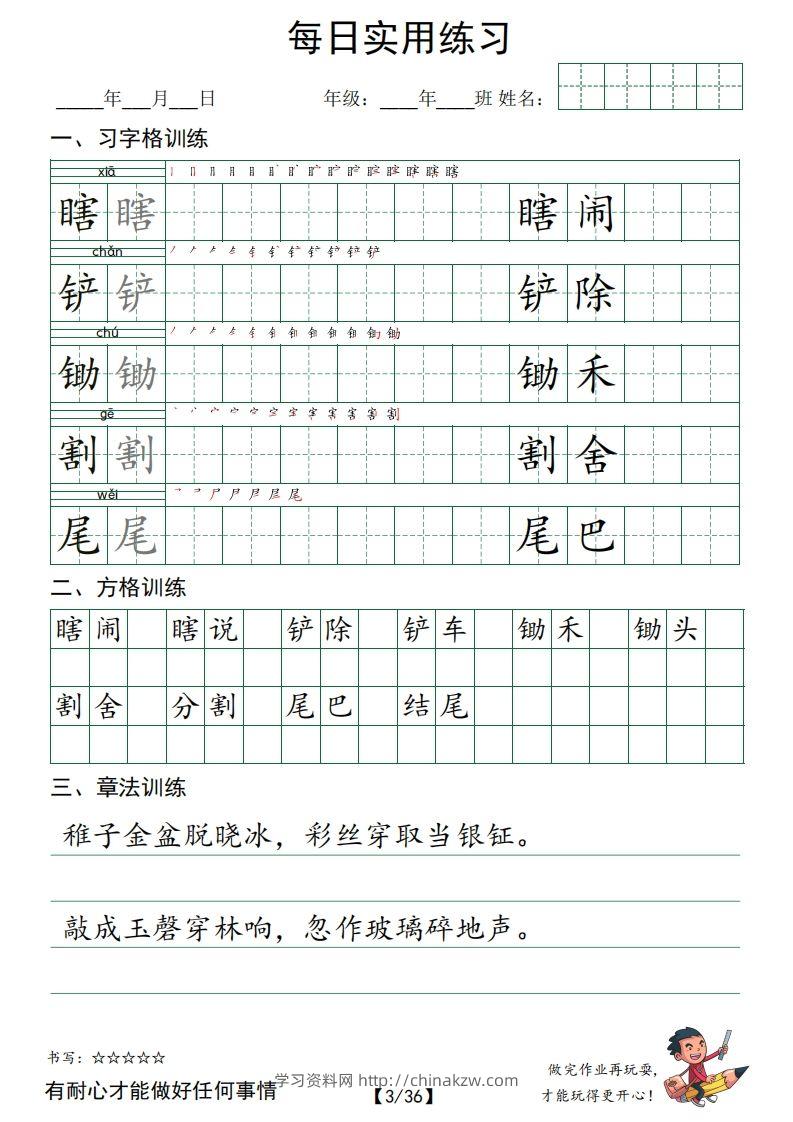 每日实用练习
_____年___月___日 年级：____年____班 姓名：
一、习字格训练
xiā
瞎 瞎 瞎 闹
chǎn
铲 铲 铲 除
chú
锄 锄 锄 禾
gē
割 割 割 舍
wěi
尾 尾 尾 巴
二、方格训练
瞎 闹 瞎 说 铲 除 铲 车 锄 禾 锄 头
割 舍 分 割 尾 巴 结 尾
三、章法训练
稚子金盆脱晓冰，彩丝穿取当银钲。
敲成玉磬穿林响，忽作玻璃碎地声。
书写：☆☆☆☆☆
做完作业再玩耍，
有耐心才能做好任何事情
学习资料网 http://chinakzw.com
【3/36】
才能玩得更开心！